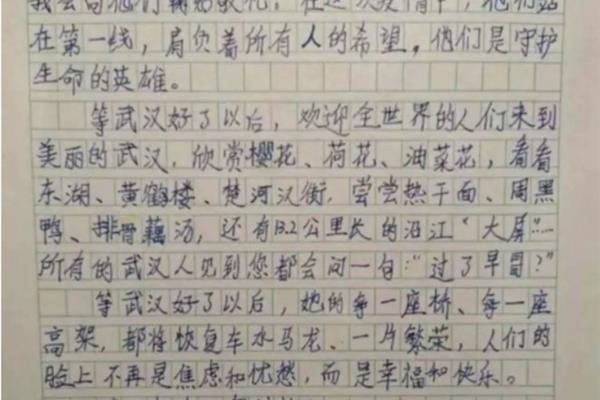 我会向他们鞠躬敬礼。在这次疫情中，他们站
在第一线，肩负着所有人的希望。他们是守护
生命的英雄。
等武汉好了以后，欢迎全世界的人们来到
美丽的武汉，欣赏樱花、荷花、油菜花，看看
东湖、黄鹤楼、楚河汉街，尝尝热干面、周黑
鸭、排骨藕汤，还有13.2公里长的沿江“大屏”…
所有的武汉人见到您都会问一句：“过了早冒？”
等武汉好了以后，她的每一座桥、每一座
高架，都将恢复车水马龙、一片繁荣，人们的
脸上不再是焦虑和忧愁，而是幸福和快乐。